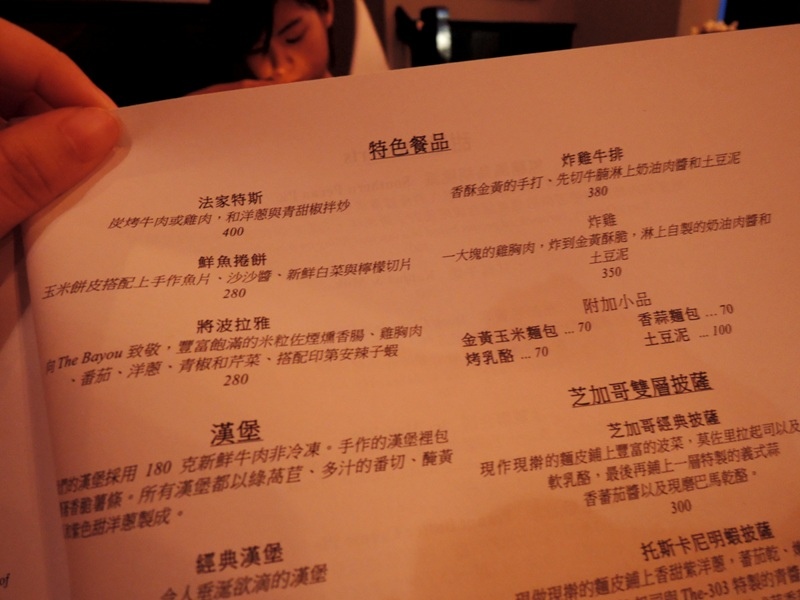 特色餐品
法家特斯
炭烤牛肉或雞肉，和洋蔥與青甜椒拌炒
400
鮮魚捲餅
玉米餅皮搭配上手作魚片、沙沙醬、新鮮白菜與檸檬切片
280
將波拉雅
向The Bayou 致敬，豐富飽滿的米粒佐煙燻香腸、雞胸肉
、番茄、洋蔥、青椒和芹菜、搭配印第安辣子蝦
280
漢堡
的漢堡採用 180 克新鮮牛肉非冷凍。手作的漢堡裡包
香脆薯條。所有漢堡都以綠萵苣、多汁的番切、醃黃
紫色甜洋蔥製成。
經典漢堡
令人垂涎欲滴的漢堡
of
炸雞牛排
香酥金黃的手打、先切牛腩淋上奶油肉醬和土豆泥
380
炸雞
一大塊的雞胸肉，炸到金黃酥脆，淋上自製的奶油肉醬和
土豆泥
350
附加小品
金黃玉米麵包 ... 70
香蒜麵包 ... 70
烤乳酪 ... 70
土豆泥 ... 100
芝加哥雙層披薩
芝加哥經典披薩
現作現擀的麵皮鋪上豐富的波菜，莫佐里拉起司以及
軟乳酪，最後再鋪上一層特製的義式蒜
香蕃茄醬以及現磨巴馬乾酪。
300
托斯卡尼明蝦披薩
現做現擀的麵皮鋪上香甜紫洋蔥，蕃茄乾、
The-303 特製的青醬